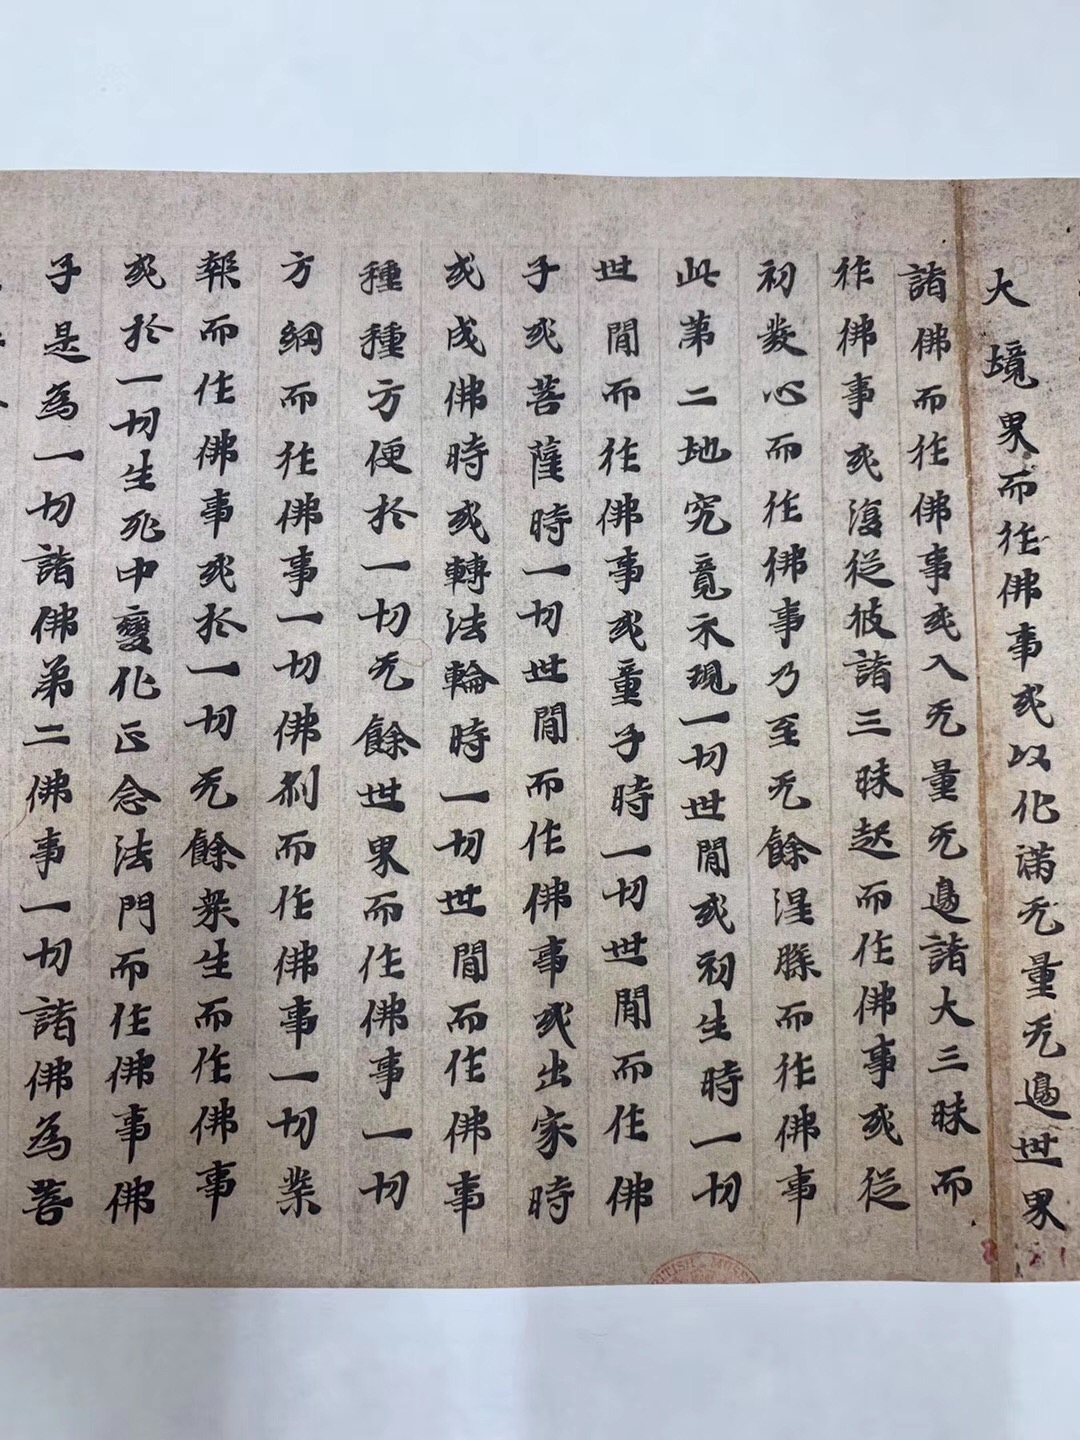 大境界而作佛事或以化滿无量无邊世界
諸佛而作佛事或入无量无邊諸大三昧而
作佛事或復從彼諸三昧起而作佛事或從
初發心而作佛事乃至无餘涅槃而作佛事
此第二地究竟示現一切世間或初生時一切
世間而作佛事或童子時一切世間而作佛
子或菩薩時一切世間而作佛事或出家時
或成佛時或轉法輪時一切世間而作佛事
種種方便於一切无餘世界而作佛事一切
方網而作佛事一切佛刹而作佛事一切業
報而作佛事或於一切无餘衆生而作佛事
或於一切生死中變化正念法門而作佛事佛
子是為一切諸佛弟二佛事一切諸佛為菩